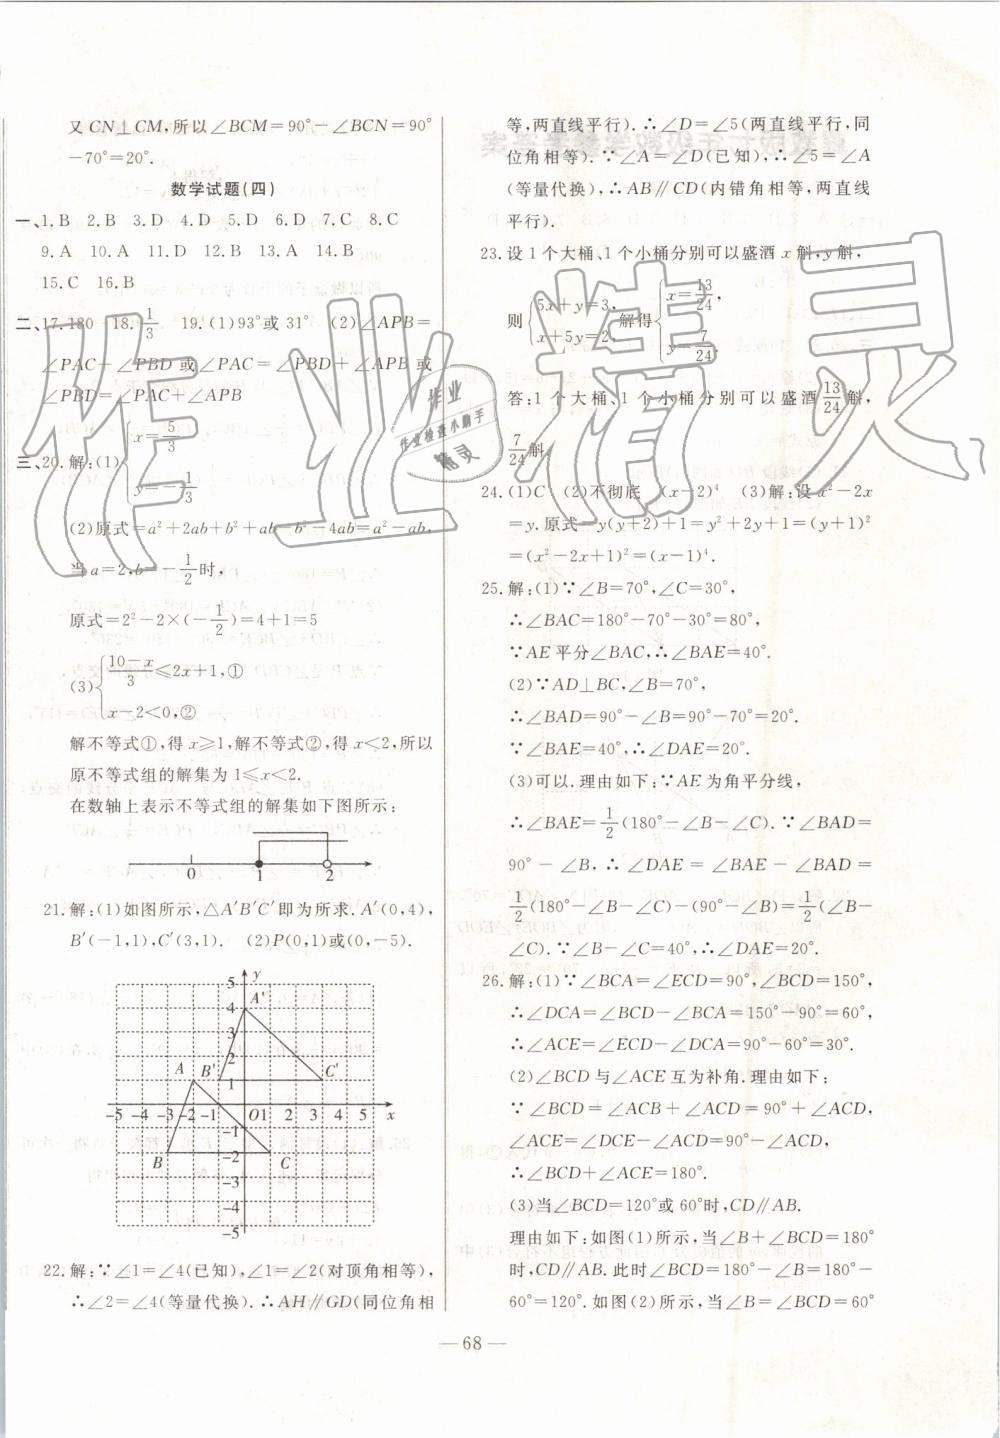 又 CN⊥CM,所以∠BCM=90°−∠BCN=90°
−70°=20°.
数学试题(四)
一、1. B 2. B 3. D 4. D 5. D 6. D 7. C 8. C
9. A 10. A 11. D 12. B 13. A 14. B
15. C 16. B
二、17. 180 18. 1/3 19. (1)93°或 31° (2)∠APB=
∠PAC−∠PBD 或∠PAC=∠PBD+∠APB 或
∠PBD=∠PAC+∠APB
三、20. 解:(1){x=5/3
y=−1/3
(2)原式=a²+2ab+b²+ab−b²−4ab=a²−ab,
当 a=2,b=−1/2时,
原式=2²−2×(−1/2)=4+1=5
(3){(10−x)/3≤2x+1,①
x−2<0,②
解不等式①,得 x≥1,解不等式②,得 x<2,所以
原不等式组的解集为 1≤x<2.
在数轴上表示不等式组的解集如下图所示:
0 1 2
21. 解:(1)如图所示,△A′B′C′即为所求. A′(0,4),
B′(−1,1),C′(3,1). (2)P(0,1)或(0,−5).
y
5
4 A′
3
2
A B′ 1 C′
−5 −4 −3 −2 −1 O 1 2 3 4 5 x
−1
B −2 C
−3
−4
−5
22. 解:∵∠1=∠4(已知),∠1=∠2(对顶角相等),
∴∠2=∠4(等量代换).∴AH∥GD(同位角相
等,两直线平行).∴∠D=∠5(两直线平行,同
位角相等).∵∠A=∠D(已知),∴∠5=∠A
(等量代换),∴AB∥CD(内错角相等,两直线
平行).
23. 设 1 个大桶、1 个小桶分别可以盛酒 x 斛,y 斛,
则{5x+y=3, x+5y=2, 解得{x=13/24, y=7/24.
答:1 个大桶、1 个小桶分别可以盛酒13/24斛,
7/24斛.
24. (1)C (2)不彻底 (x−2)⁴ (3)解:设 x²−2x
=y. 原式=y(y+2)+1=y²+2y+1=(y+1)²
=(x²−2x+1)²=(x−1)⁴.
25. 解:(1)∵∠B=70°,∠C=30°,
∴∠BAC=180°−70°−30°=80°,
∵AE 平分∠BAC,∴∠BAE=40°.
(2)∵AD⊥BC,∠B=70°,
∴∠BAD=90°−∠B=90°−70°=20°.
∵∠BAE=40°,∴∠DAE=20°.
(3)可以. 理由如下:∵AE 为角平分线,
∴∠BAE=1/2(180°−∠B−∠C).∵∠BAD=
90°−∠B,∴∠DAE=∠BAE−∠BAD=
1/2(180°−∠B−∠C)−(90°−∠B)=1/2(∠B−
∠C).∵∠B−∠C=40°,∴∠DAE=20°.
26. 解:(1)∵∠BCA=∠ECD=90°,∠BCD=150°,
∴∠DCA=∠BCD−∠BCA=150°−90°=60°,
∴∠ACE=∠ECD−∠DCA=90°−60°=30°.
(2)∠BCD 与∠ACE 互为补角. 理由如下:
∵∠BCD=∠ACB+∠ACD=90°+∠ACD,
∠ACE=∠DCE−∠ACD=90°−∠ACD,
∴∠BCD+∠ACE=180°.
(3)当∠BCD=120°或 60°时,CD∥AB.
理由如下:如图(1)所示,当∠B+∠BCD=180°
时,CD∥AB. 此时∠BCD=180°−∠B=180°−
60°=120°. 如图(2)所示,当∠B=∠BCD=60°
— 68 —
作业精灵
作业
作业检查小助手
精灵